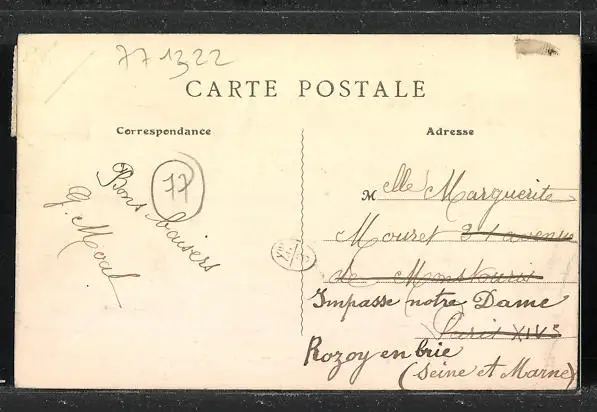 77 1322
CARTE POSTALE
Correspondance
Adresse
17
Bons baisers
G. Moal
Melle Marguerite
Mouret 31 avenue
de Montsouris
Impasse notre Dame
Paris XIVe
Rozoy en brie
(Seine et Marne)